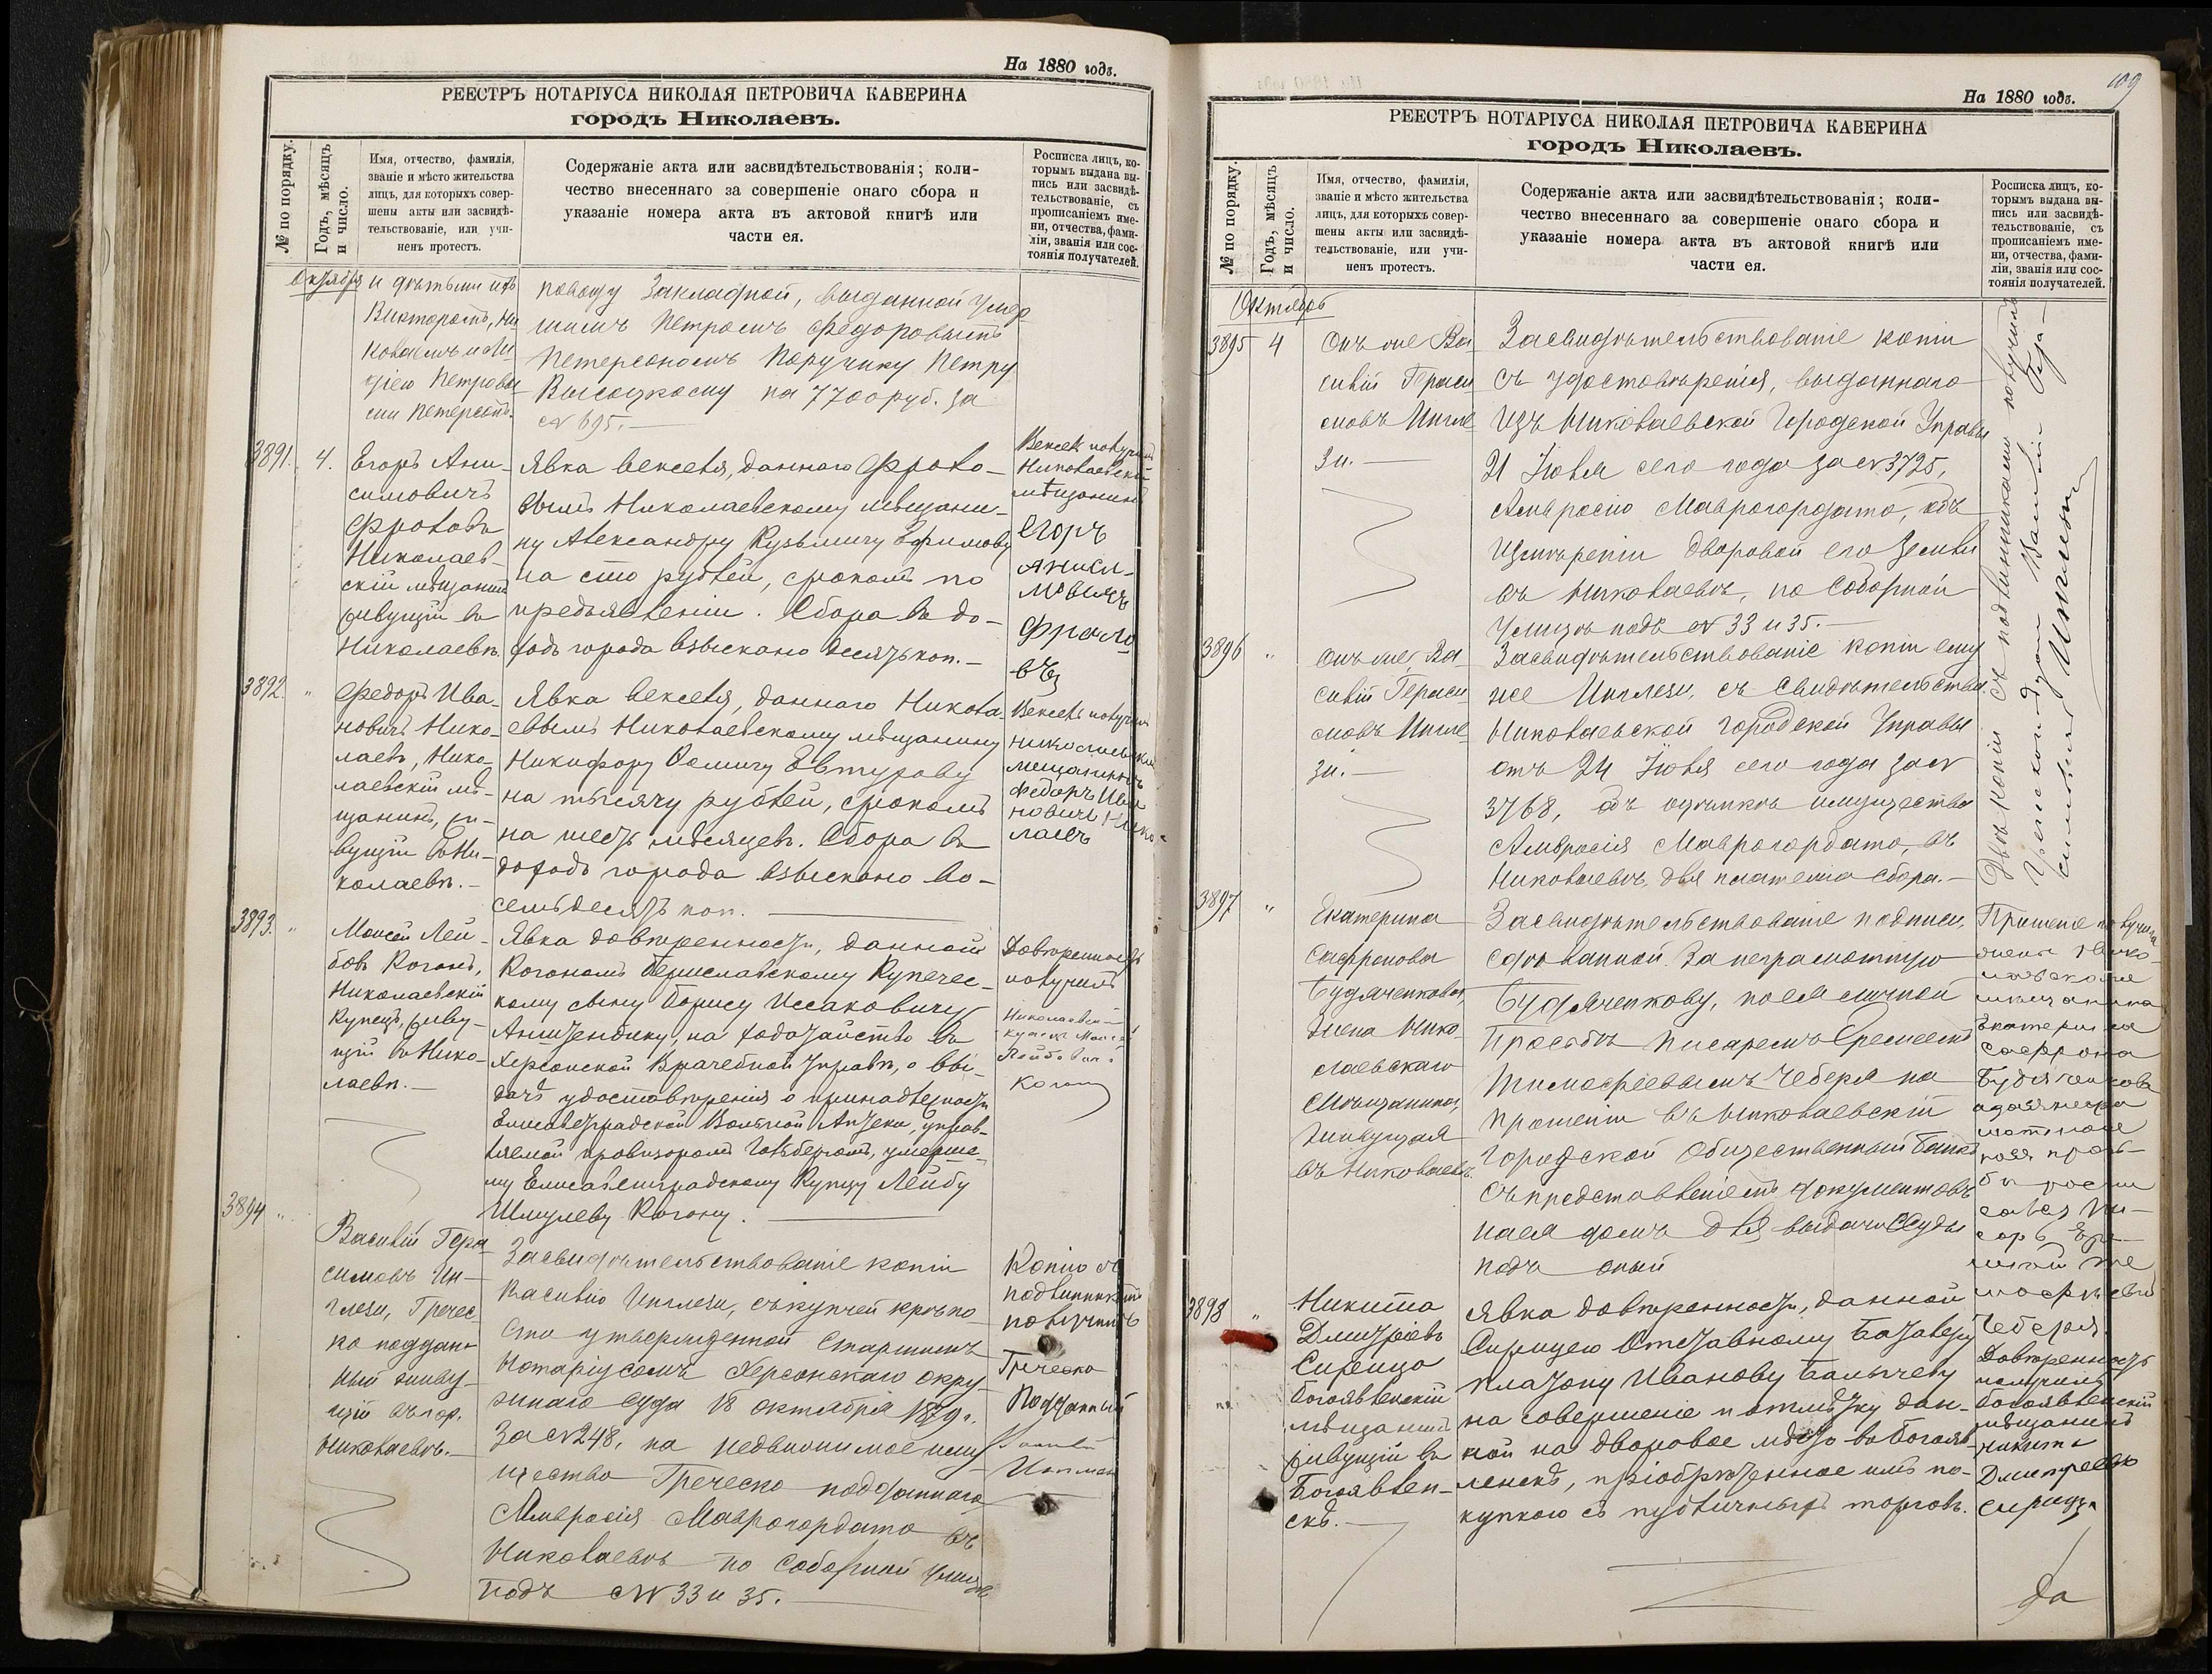 На 1880 годъ.
РЕЕСТРЪ НОТАРІУСА НИКОЛАЯ ПЕТРОВИЧА КАВЕРИНА
городъ Николаевъ.
№ по порядку.
Годъ, мѣсяцъ
и число.
Имя, отчество, фамилія,
званіе и мѣсто жительства
лицъ, для которыхъ совер-
шены акты или засвидѣ-
тельствованіе, или учи-
ненъ протестъ.
Содержаніе акта или засвидѣтельствованія; коли-
чество внесеннаго за совершеніе онаго сбора и
указаніе номера акта въ актовой книгѣ или
части ея.
Росписка лицъ, ко-
торымъ выдана вы-
пись или засвидѣ-
тельствованіе, съ
прописаніемъ име-
ни, отчества, фами-
ліи, званія или сос-
тоянія получателей.
Октября
и дѣтьми ихъ
Викторомъ, Ни
колаемъ и Ли
діею Петровы
ми Петерсонъ.
поводу Закладной, выданной умер
шимъ Петромъ Федоровымъ
Петерсономъ Поручику Петру
Высоцкому на 7700 руб. за
№ 695.
3891. 4.
Егоръ Ани-
симовичъ
Фроловъ
Николаев-
скій мѣщанинъ
живущій въ
Николаевѣ.
Явка векселя, даннаго Фроло-
вымъ Николаевскому мѣщани-
ну Александру Кузьмичу Ефимову
на сто рублей, срокомъ по
предъявленіи. Сбора въ до-
ходъ города взыскано десять коп.
Вексель получилъ
Николаевскій
мѣщанинъ
Егоръ
Аниси-
мовичъ
Фроло-
въ
3892. "
Федоръ Ива-
новичъ Нико-
лаевъ, Нико-
лаевскій мѣ-
щанинъ, жи-
вущій въ Ни-
колаевѣ.
Явка векселя, даннаго Никола-
евымъ Николаевскому мѣщанину
Никифору Фомичу Евтурову
на тысячу рублей, срокомъ
на шесть мѣсяцевъ. Сбора въ
доходъ города взыскано во-
семьдесятъ коп.
Вексель получилъ
николаевски
мещанинъ
Федоръ Ива
новичъ Нико-
лаевъ
3893. "
Моисей Лей-
бовъ Коганъ,
Николаевскій
Купецъ, живу-
щій въ Нико-
лаевѣ.
Явка довѣренности, данной
Коганомъ Бериславскому Купечес-
кому сыну Борису Исаковичу
на ходатайство въ
Херсонской Врачебной Управѣ, о вы-
дачѣ удостовѣренія о принадлежности
Елисаветградской Вольной Аптеки, управ-
ляемой провизоромъ Гольбергомъ, умерше-
му Елисаветградскому Купцу Лейбу
Шмулеву Когану.
Довѣренность
получилъ
Николаевскій
купецъ Моисей
Лейбовичъ
Коганъ
3894 "
Василій Гера
симовъ Ин-
глези, Гречес-
ко поддан-
ный живу-
щій въ гор.
Николаевѣ.
Засвидѣтельствованіе копіи
Василію Инглези, съ купчей крѣпо
сти утвержденной Старшимъ
Нотаріусомъ Херсонскаго окру-
жнаго суда 18 октября 1879 г.
за № 248, на недвижимое иму-
щество Греческо подданнаго
Амвросія Маврогордато въ
Николаевѣ по Соборной улицѣ
подъ № 33 и 35.
Копію съ
подлинникомъ
получилъ
Греческо
Подданный
Василій
Инглези
109
На 1880 годъ.
РЕЕСТРЪ НОТАРІУСА НИКОЛАЯ ПЕТРОВИЧА КАВЕРИНА
городъ Николаевъ.
№ по порядку.
Годъ, мѣсяцъ
и число.
Имя, отчество, фамилія,
званіе и мѣсто жительства
лицъ, для которыхъ совер-
шены акты или засвидѣ-
тельствованіе, или учи-
ненъ протестъ.
Содержаніе акта или засвидѣтельствованія; коли-
чество внесеннаго за совершеніе онаго сбора и
указаніе номера акта въ актовой книгѣ или
части ея.
Росписка лицъ, ко-
торымъ выдана вы-
пись или засвидѣ-
тельствованіе, съ
прописаніемъ име-
ни, отчества, фами-
ліи, званія или сос-
тоянія получателей.
Октябрь
3895 4
Онъ же Ва-
силій Гераси
мовъ Ингле
зи.
Засвидѣтельствованіе копіи
съ удостовѣренія, выданнаго
изъ Николаевской Городской Управы
21 Іюля сего года за № 3725,
Амвросію Маврогордато, объ
измѣреніи дворовой его земли
въ Николаевѣ, по Соборной
улицѣ подъ № 33 и 35.
3896 "
Онъ же, Ва-
силій Гераси
мовъ Ингле
зи.
Засвидѣтельствованіе копіи ему
же Инглези, съ свидѣтельства
Николаевской городской Управы
отъ 24 Іюля сего года за №
3768, объ оцѣнкѣ имущества
Амвросія Маврогордато, въ
Николаевѣ, для платежа сбора.
Двѣ копіи съ подлинниками получилъ
Греческоподдан. Василій Гера-
симовъ Инглези
3897 "
Екатерина
Сафронова
Будяченкова,
жена Нико
лаевскаго
Мѣщанина,
живущая
въ Николаевѣ.
Засвидѣтельствованіе подписи,
сдѣланной за неграмотную
Будяченкову, по ея личной
просьбѣ писаремъ Еремеемъ
Тимофеевымъ Чеберя на
прошеніи въ Николаевскій
Городской Общественный банкъ
съ представленіемъ документовъ
на ея домъ для выдачи ссуды
подъ оный
Прошение получила
жена Нико-
лаевскаго
мѣщанина
Екатерина
Сафрона
Будяченкова
а за неграмотною
по ея прозь-
бы росписался Пи-
сарь Ере-
мѣй Ти
мофѣевъ
Чеберя.
3898 "
Никита
Дмитріевъ
Сирица
Богоявленскій
мѣщанинъ
живущій въ
Богоявлен-
скѣ.
Явка довѣренности, данной
Сирицею Отставному Баталеру
Платону Иванову Балычеву
на совершеніе и отмѣтку дан-
ной на дворовое мѣсто въ Богояв-
ленскѣ, пріобрѣтенное имъ по-
купкою съ публичныхъ торговъ.
Довѣренность
получилъ
богоявленскій
мѣщанинъ
Никита
Дмитреевъ
Сирица
Да